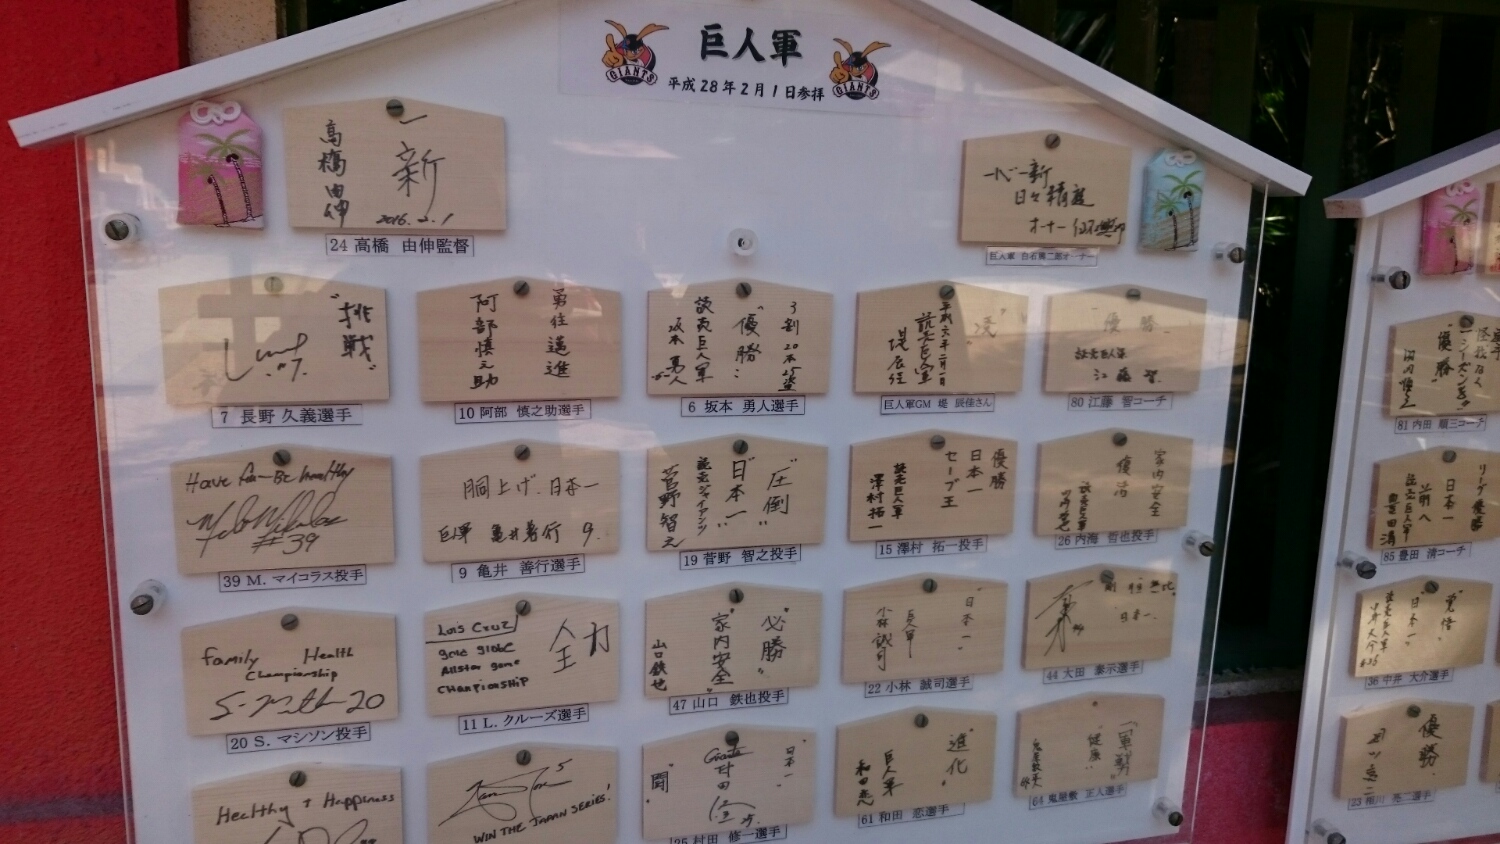 巨人軍
GIANTS
GIANTS
平成28年2月1日参拝
一新
高橋由伸
2016.2.1
24 高橋 由伸監督
日々精進
オーナー
巨人軍 白石興二郎オーナー
"挑戦"
7 長野 久義選手
勇往邁進
阿部慎之助
10 阿部 慎之助選手
3割20本25盗
"優勝"
読売巨人軍
坂本勇人
6 坂本 勇人選手
平成二八年二月一日
読売巨人軍
堤辰佳
巨人軍GM 堤 辰佳さん
優勝
読売巨人軍
江藤智
80 江藤 智コーチ
Have fun-Be healthy
#39
39 M. マイコラス投手
胴上げ、日本一
巨人軍 亀井善行 9
9 亀井 善行選手
"圧倒"
"日本一"
読売ジャイアンツ
菅野智之
19 菅野 智之投手
優勝
日本一
セーブ王
読売巨人軍
澤村拓一
15 澤村 拓一投手
家内安全
優勝
読売巨人軍
26 内海 哲也投手
Family Health
Championship
20
20 S. マシソン投手
Luis Cruz
gold globe
Allstar game
CHAMPIONSHIP
全力
11 L. クルーズ選手
"必勝"
"家内安全"
山口鉄也
47 山口 鉄也投手
"日本一"
巨人軍
小林誠司
22 小林 誠司選手
44 大田 泰示選手
Healthy + Happiness
5
WIN THE JAPAN SERIES!
日本一
Giants
村田
25
25 村田 修一選手
"進化"
巨人軍
和田恋
61 和田 恋選手
"健康"
64 鬼屋敷 正人選手
"優勝"
81 内田 順三コーチ
リーグ優勝
日本一
読売巨人軍
豊田清
85 豊田 清コーチ
"覚悟"
"日本一"
読売巨人軍
中井大介
36 中井 大介選手
優勝
23 相川 亮二選手